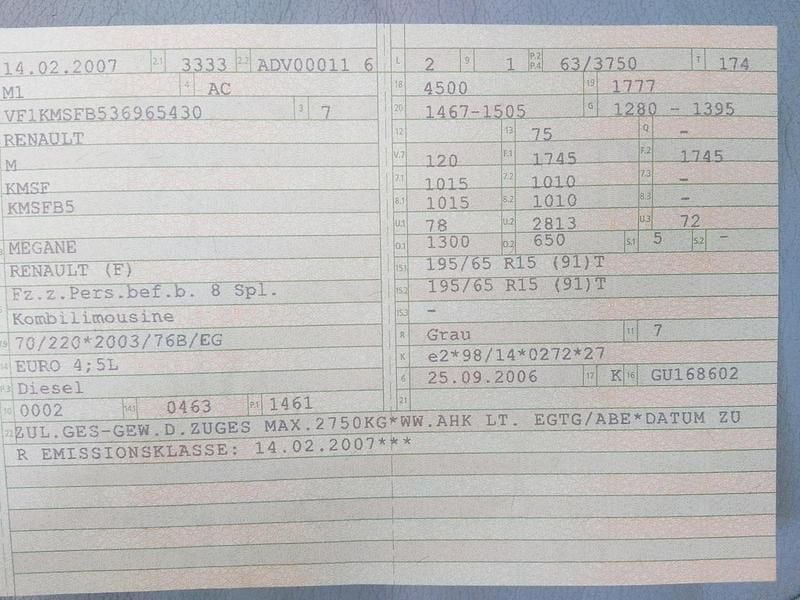 14.02.2007 2.1 3333 2.2 ADV00011 6
M1 4 AC
VF1KMSFB536965430 3 7
RENAULT
M
KMSF
KMSFB5
MEGANE
RENAULT (F)
Fz.z.Pers.bef.b. 8 Spl.
Kombilimousine
70/220*2003/76B/EG
14 EURO 4;5L
P.3 Diesel
10 0002 14.1 0463 P.1 1461
L 2 9 1 P.2 P.4 63/3750 T 174
18 4500 19 1777
20 1467-1505 G 1280 - 1395
12 13 75 Q -
V.7 120 F.1 1745 F.2 1745
7.1 1015 7.2 1010 7.3 -
8.1 1015 8.2 1010 8.3 -
U.1 78 U.2 2813 U.3 72
O.1 1300 O.2 650 S.1 5 S.2 -
15.1 195/65 R15 (91)T
15.2 195/65 R15 (91)T
15.3 -
R Grau 11 7
K e2*98/14*0272*27
6 25.09.2006 17 K 16 GU168602
21
22 ZUL.GES-GEW.D.ZUGES MAX.2750KG*WW.AHK LT. EGTG/ABE*DATUM ZU
R EMISSIONSKLASSE: 14.02.2007***